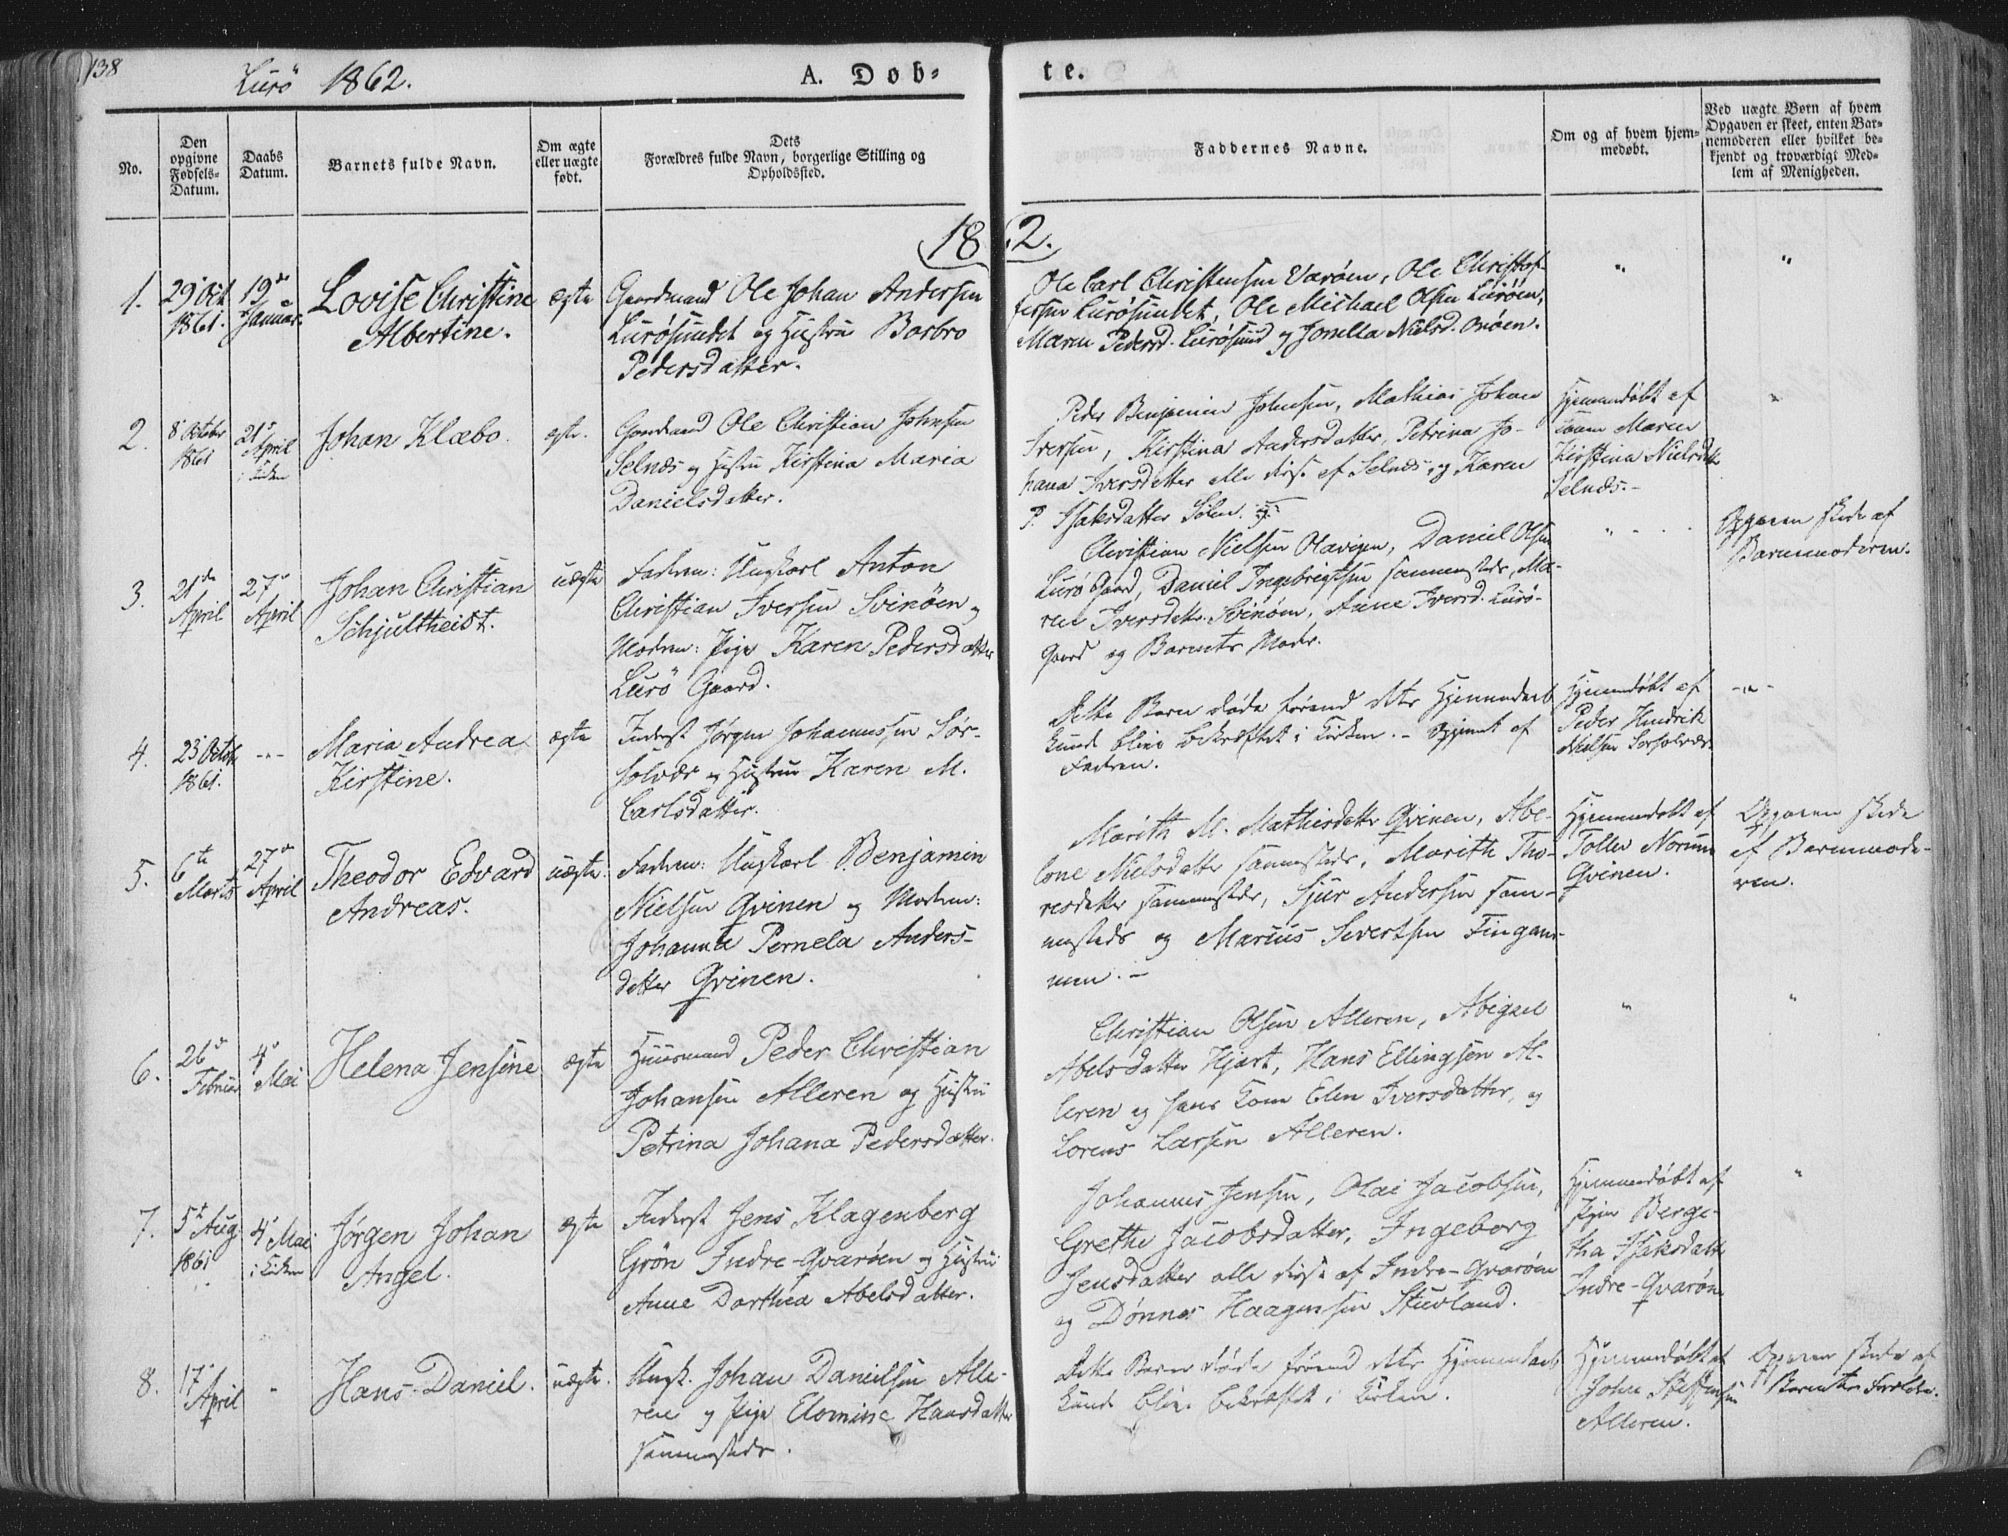 138
Lurö 1862.
A. Döb-
te.
No.
Den opgivne Fødsels-Datum.
Daabs Datum.
Barnets fulde Navn.
Om ægte eller uægte født.
Dets Forældres fulde Navn, borgerlige Stilling og Opholdssted.
Faddernes Navne.
Om og af hvem hjemmedøbt.
Ved uægte Børn af hvem Opgaven er skeet, enten Barnemoderen eller hvilket bekjendt og troværdigt Medlem af Menigheden.
1862.
1.
29 Oct
1861.
19de
Januar.
Lovise Christine
Albertine.
ægte
Gaardmand Ole Johan Andersen
Lurösundet og Hustru Barbro
Pedersdatter.
Ole Carl Christensen Varöen, Ole Christof-
fersen Lurösundet, Ole Michael Olsen Luröen,
Maren Pedersd. Lurösund og Jonella Nielsd. Onöen.
"
"
2.
8 October
1861
21de
April
i Kirken
Johan Klæbo.
ægte.
Gaardmand Ole Christian Johnsen
Selnæs og Hustru Kirstina Maria
Danielsdatter.
Peder Benjamin Johnsen, Mathias Johan
Iversen, Kirstina Andersdatter, Petrina Jo-
hana Iversdatter alle disse af Selnæs, og Karen
P. Isaksdatter
Hjemmedöbt af
Maren
Kirstina Nielsdatter
Selnæs.
"
3.
21de
April
27de
April
Johan Christian
Schjultheist.
uægte
Fadren: Ungkarl Anton
Christian Iversen Svinöen og
Modren: Pige Karen Pedersdatter
Lurö Gaard.
Christian Nielsen Olavigen, Daniel Olsen
Lurö Gaard, Daniel Ingebrigtsen sammesteds, Ma-
ren Iversdatter Svinöen, Anne Iversd. Lurö-
Gaard og Barnets Moder.
"
Opgaven skede af
Barnemoderen.
4.
23 Octob
1861.
Maria Andrea
Kirstine.
ægte
Inderst Jørgen Johannesen Sör-
solvær og Hustru Karen M.
Carlsdatter.
Dette Barn döde förend dets Hjemmedaab
kunde blive bekræftet i Kirken. - Opgivet af
Fadren.
Hjemmedöbt af
Peder Hendrik
Nielsen Sorsolvær.
-"-
5.
6te
Marts
27de
April
Theodor Edvard
Andreas.
uægte.
Fadren: Ungkarl P. Benjamin
Nielsen Qvinen og Modren:
Johanna Pernela Anders-
datter Qvinen.
Marith M. Mathisdatter Qvinen, Abe-
lone Nielsdatter sammesteds, Marith Tho-
resdatter sammesteds, Sjur Andersen sam-
mesteds og Marius Sivertsen
Hjemmedöbt af
Tollev
Qvinen.
Opgaven skede
af Barnemode-
ren.
6.
26de
Februar
4de
Mai
Helena Jensine
ægte
Huusmand Peder Christian
Johansen Alleren og Hustru
Petrina Johana Pedersdatter.
Christian Olsen Alleren, Abigael
Abelsdatter Hjart, Hans Ellingsen Al-
leren og hans Kone Elen Iversdatter, og
Lorens Larsen Alleren.
"
"
7.
5te Aug
1861
4de Mai
i Kirken
Jørgen Johan
Angel.
ægte
Inderst Jens Klagenberg
Grön Indre-Qvaröen og Hustru
Anne Dorthea Abelsdatter.
Johannes Jensen, Olai Jacobsen,
Grethe Jacobsdatter, Ingeborg
Jensdatter alle disse af Indre-Qvaröen
og Dønnes Haagensen Stuvland.
Hjemmedöbt af
Pigen Berge-
tha Isaksdatter
Indre-Qvaröen
"
8.
17de
April
"
Hans Daniel.
uægte.
Ungk. Johan Danielsen Alle-
ren og Pige Elomine Hansdatter
sammesteds.
Dette Barn döde förend dets Hjemmedaab
kunde blive bekræftet i Kirken.
Hjemmedöbt af
John Steffensen
Alleren.
Opgaven skede af
Barnets Forældre.